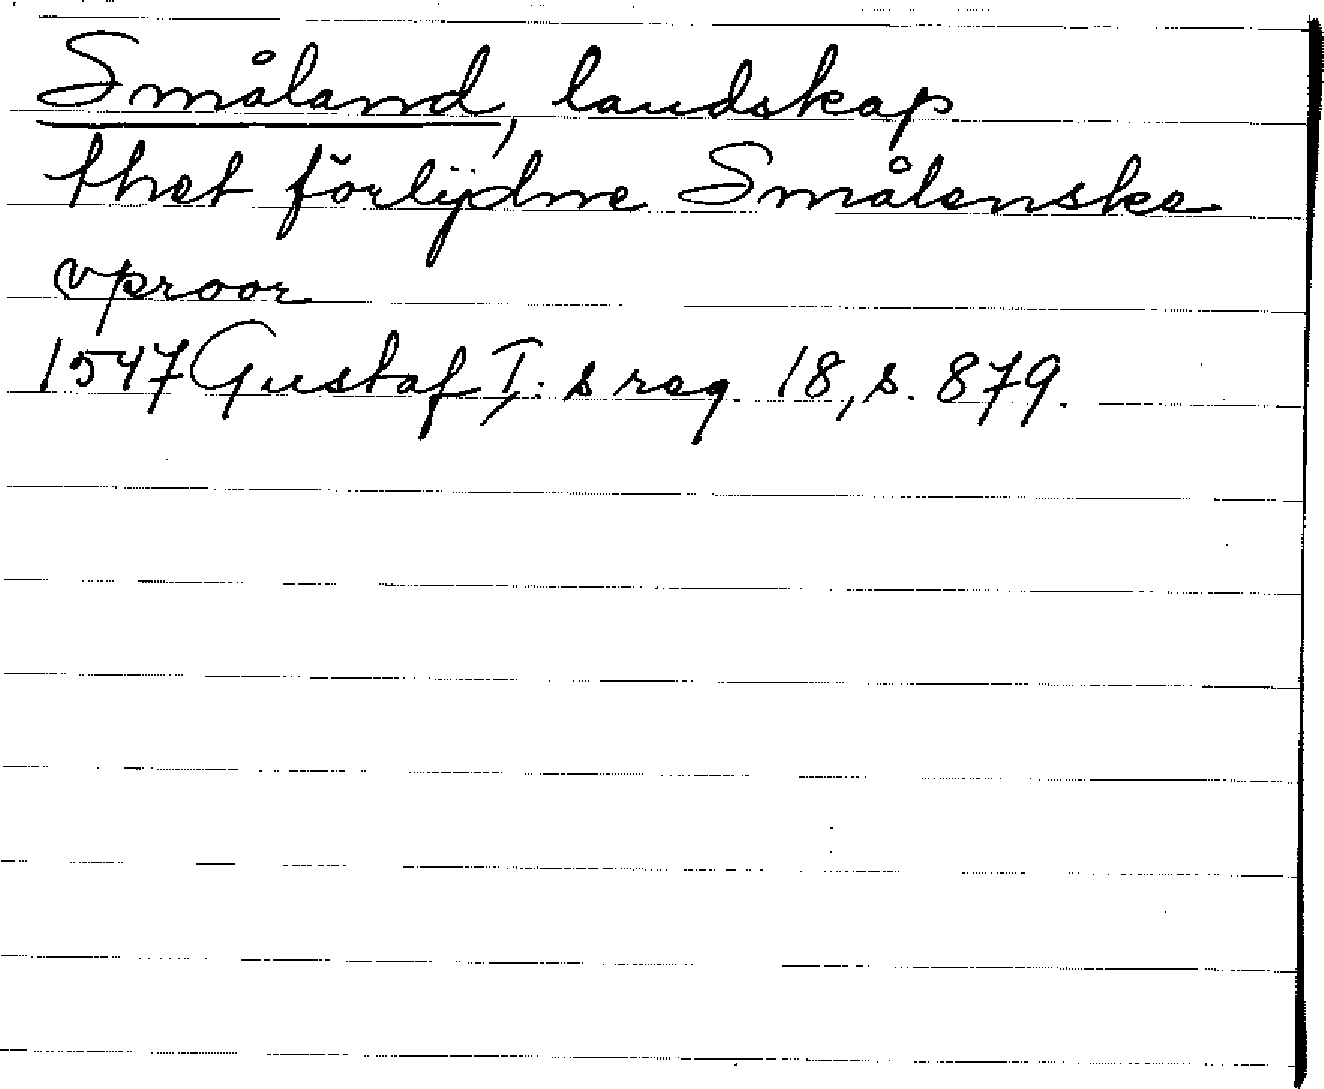 Småland, landskap
thet förlijdne Smålenske
vproor
1547 Gustaf I:s reg. 18, s. 879.